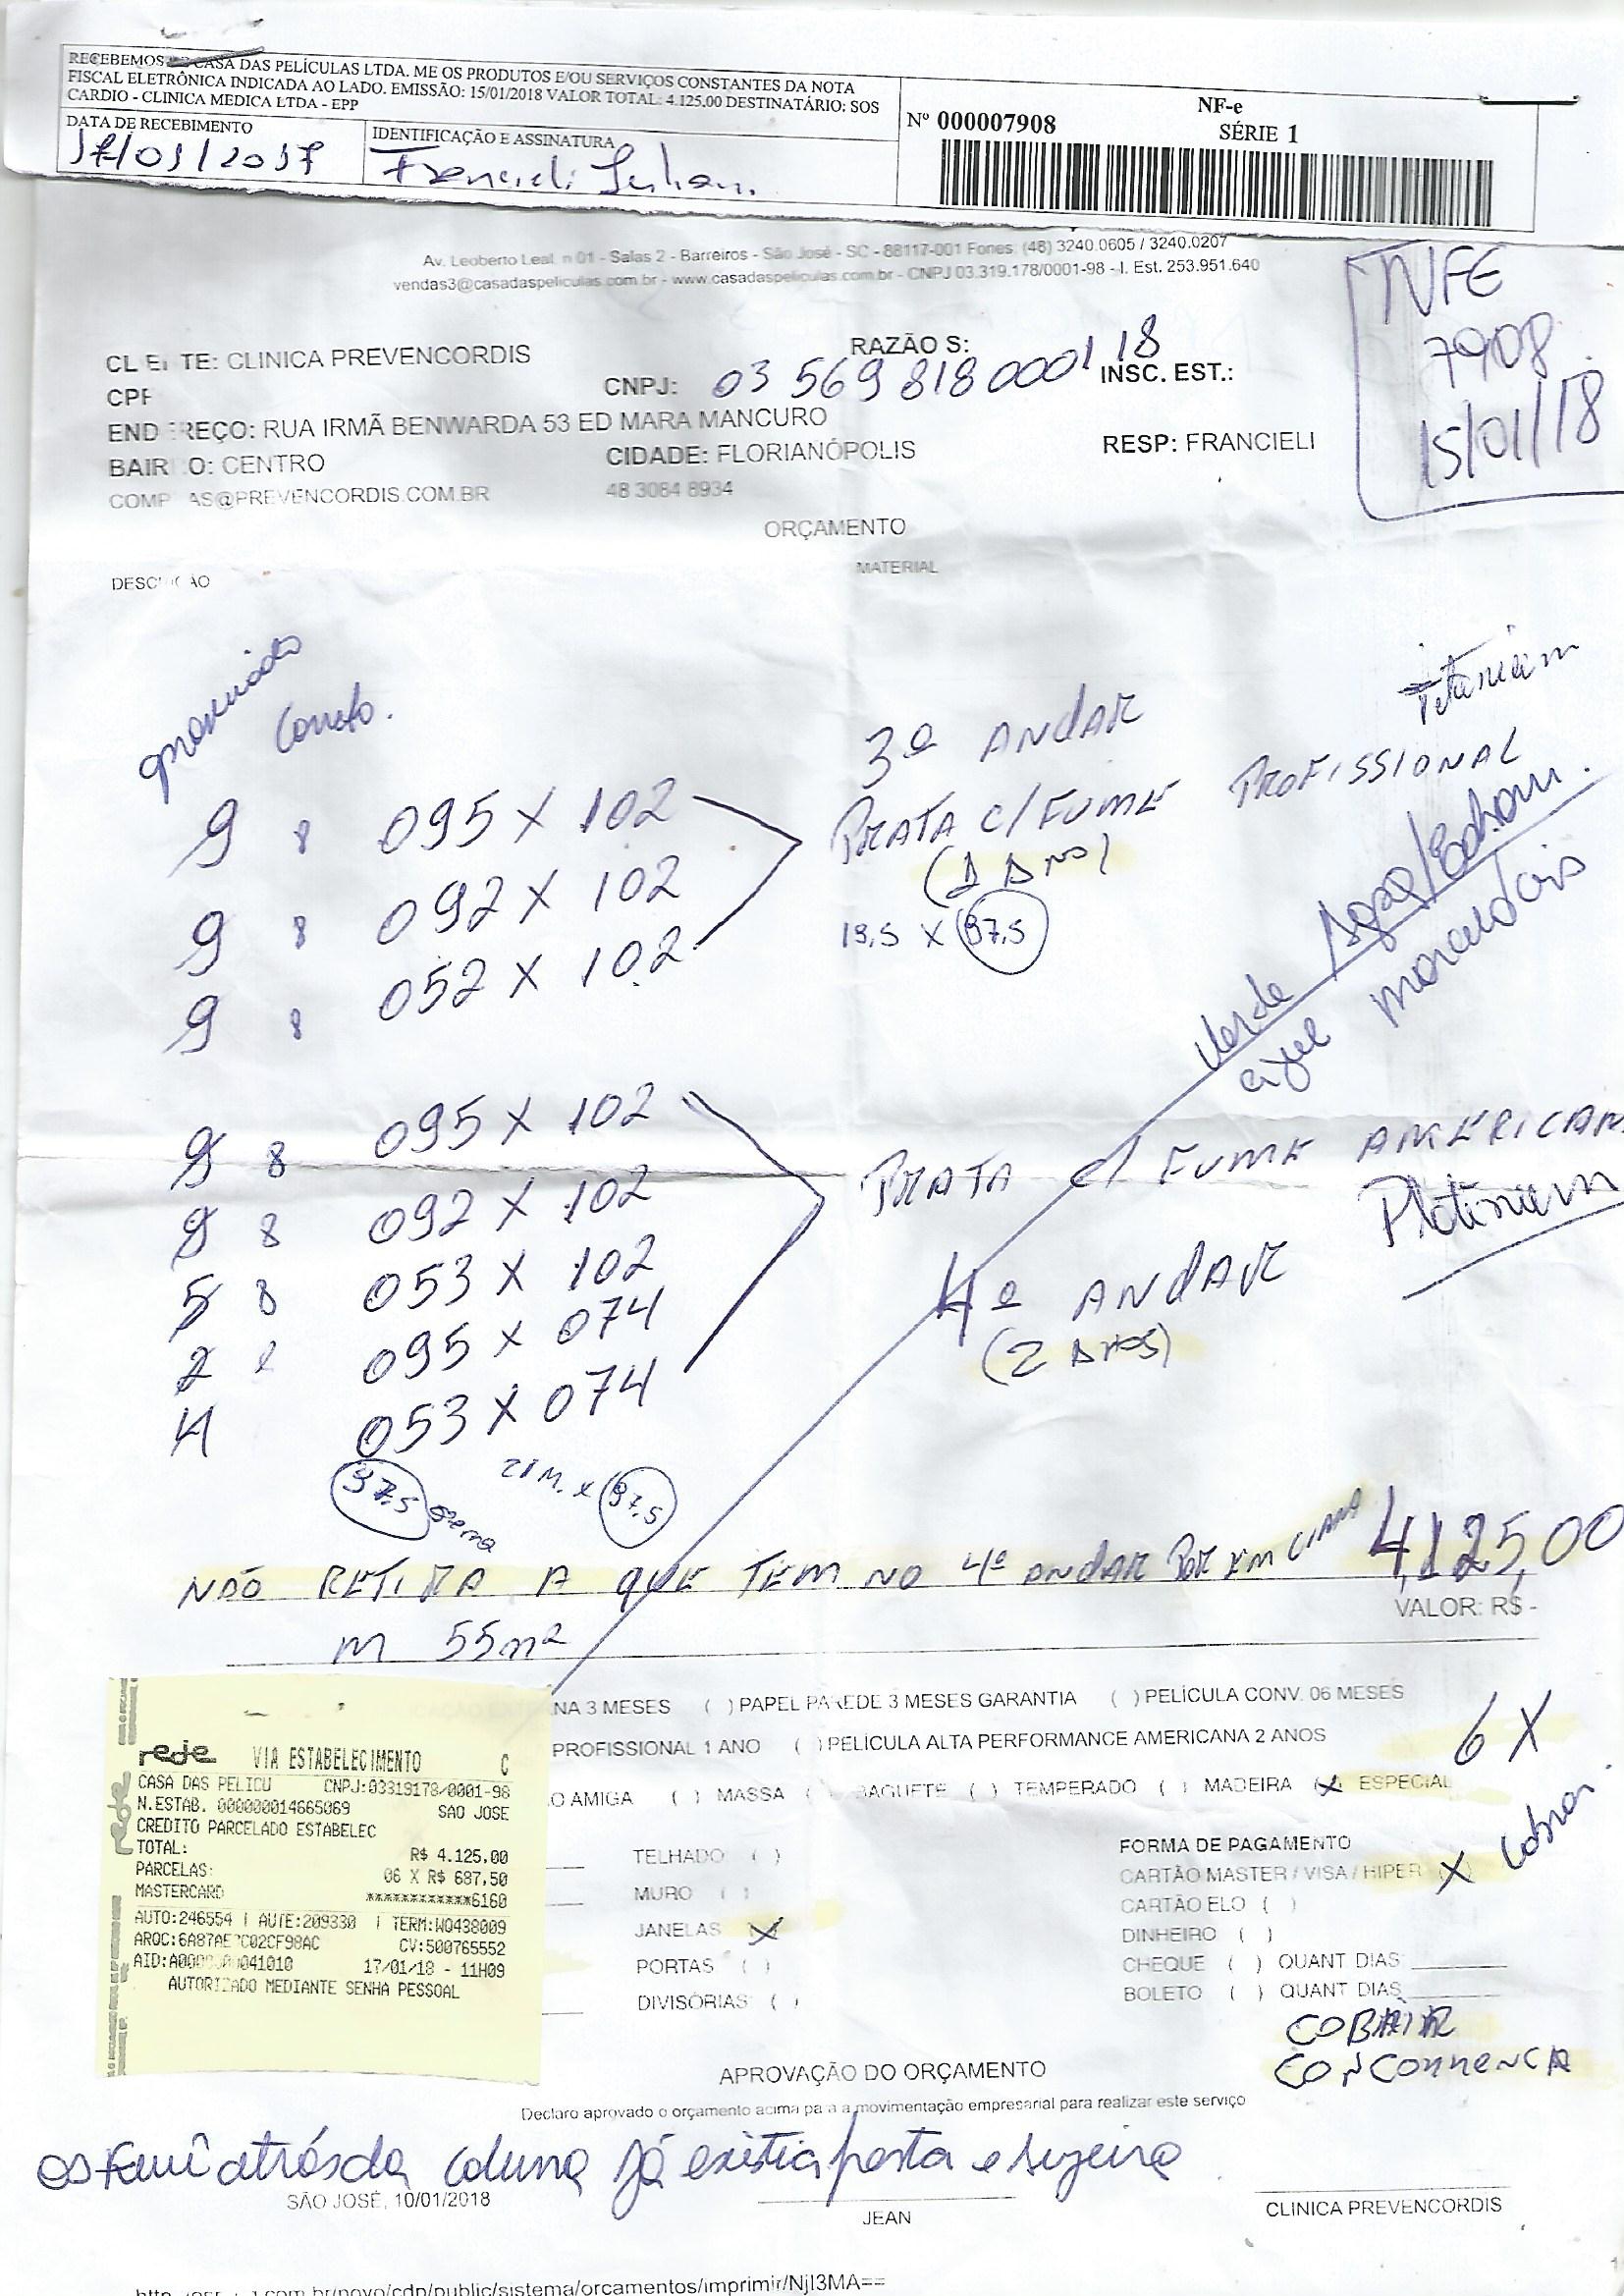 RECEBEMOS DE CASA DAS PELÍCULAS LTDA. ME OS PRODUTOS E/OU SERVIÇOS CONSTANTES DA NOTA
FISCAL ELETRÔNICA INDICADA AO LADO. EMISSÃO: 15/01/2018 VALOR TOTAL: 4.125,00 DESTINATÁRIO: SOS
CARDIO - CLINICA MEDICA LTDA - EPP
DATA DE RECEBIMENTO
17/01/2017
IDENTIFICAÇÃO E ASSINATURA
NF-e
Nº 000007908 SÉRIE 1
Av. Leoberto Leal, n 01 - Salas 2 - Barreiros - São José - SC - 88117-001 Fones: (48) 3240.0605 / 3240.0207
vendas3@casadaspeliculas.com.br - www.casadaspeliculas.com.br - CNPJ 03.319.178/0001-98 - I. Est. 253.951.640
NFE
7908
15/01/18
CL E TE: CLINICA PREVENCORDIS RAZÃO S:
CPF CNPJ: 03 569 818 0001 18 INSC. EST.:
END REÇO: RUA IRMÃ BENWARDA 53 ED MARA MANCURO
BAIR O: CENTRO CIDADE: FLORIANÓPOLIS RESP: FRANCIELI
COMP AS@PREVENCORDIS.COM.BR 48 3084 8934
ORÇAMENTO
DESC ÃO MATERIAL
correto.
Titanium
3º ANDAR
PRATA C/ FUME PROFISSIONAL
(1 ANO)
19,5 X 97,5
9 8 095 X 102
9 8 092 X 102
9 8 052 X 102
Verde
azul
9 8 095 X 102
9 8 092 X 102
5 8 053 X 102
2 095 X 074
4 053 X 074
PRATA C/ FUME AMERICAN
Platinium
4º ANDAR
(2 ANOS)
97,5 21 M. X 97,5
NÃO RETIRA A QUE TEM NO 4º ANDAR POR EM CIMA 4.125,00
VALOR: R$ -
M 55m²
NA 3 MESES ( ) PAPEL PAREDE 3 MESES GARANTIA ( ) PELÍCULA CONV. 06 MESES
PROFISSIONAL 1 ANO ( ) PELÍCULA ALTA PERFORMANCE AMERICANA 2 ANOS
6 X
O AMIGA ( ) MASSA ( BAGUETE ( ) TEMPERADO ( ) MADEIRA (X) ESPECIAL
rede VIA ESTABELECIMENTO C
CASA DAS PELICU CNPJ:03319178/0001-98
N.ESTAB. 000000014665069 SAO JOSE
CREDITO PARCELADO ESTABELEC
TOTAL: R$ 4.125,00
PARCELAS: 06 X R$ 687,50
MASTERCARD ************6160
AUTO:246554 | AUTE:209330 | TERM:WO438009
CV:500765552
17/01/18 - 11H09
AUTORIZADO MEDIANTE SENHA PESSOAL
TELHADO ( )
MURO ( )
JANELAS (X)
PORTAS ( )
DIVISÓRIAS ( )
FORMA DE PAGAMENTO
CARTÃO MASTER / VISA / HIPER (X)
CARTÃO ELO ( )
DINHEIRO ( )
CHEQUE ( ) QUANT DIAS
BOLETO ( ) QUANT DIAS
COBRIR
CONCORRENCA
APROVAÇÃO DO ORÇAMENTO
Declaro aprovado o orçamento acima para a movimentação empresarial para realizar este serviço
atrás da coluna já existia porta e sujeira
SÃO JOSÉ, 10/01/2018
JEAN
CLINICA PREVENCORDIS
.com.br/novo/cdp/public/sistema/orcamentos/imprimir/NjI3MA==